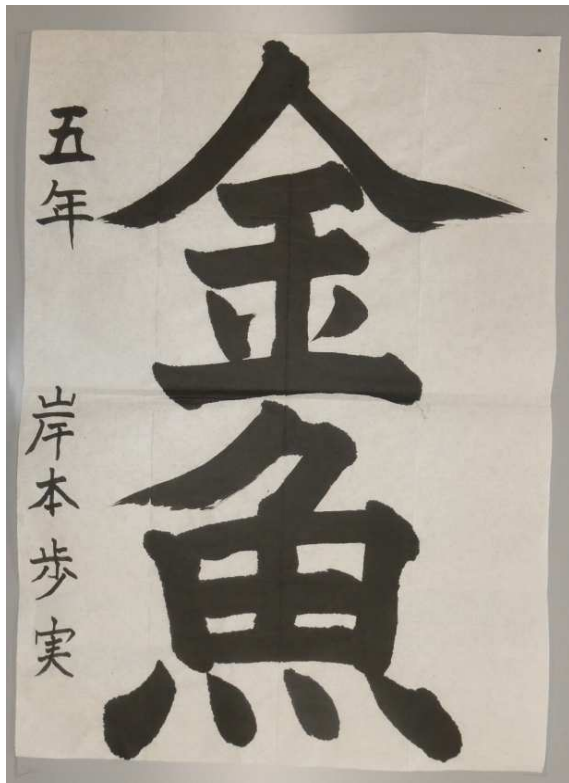 金魚
五年 岸本歩実